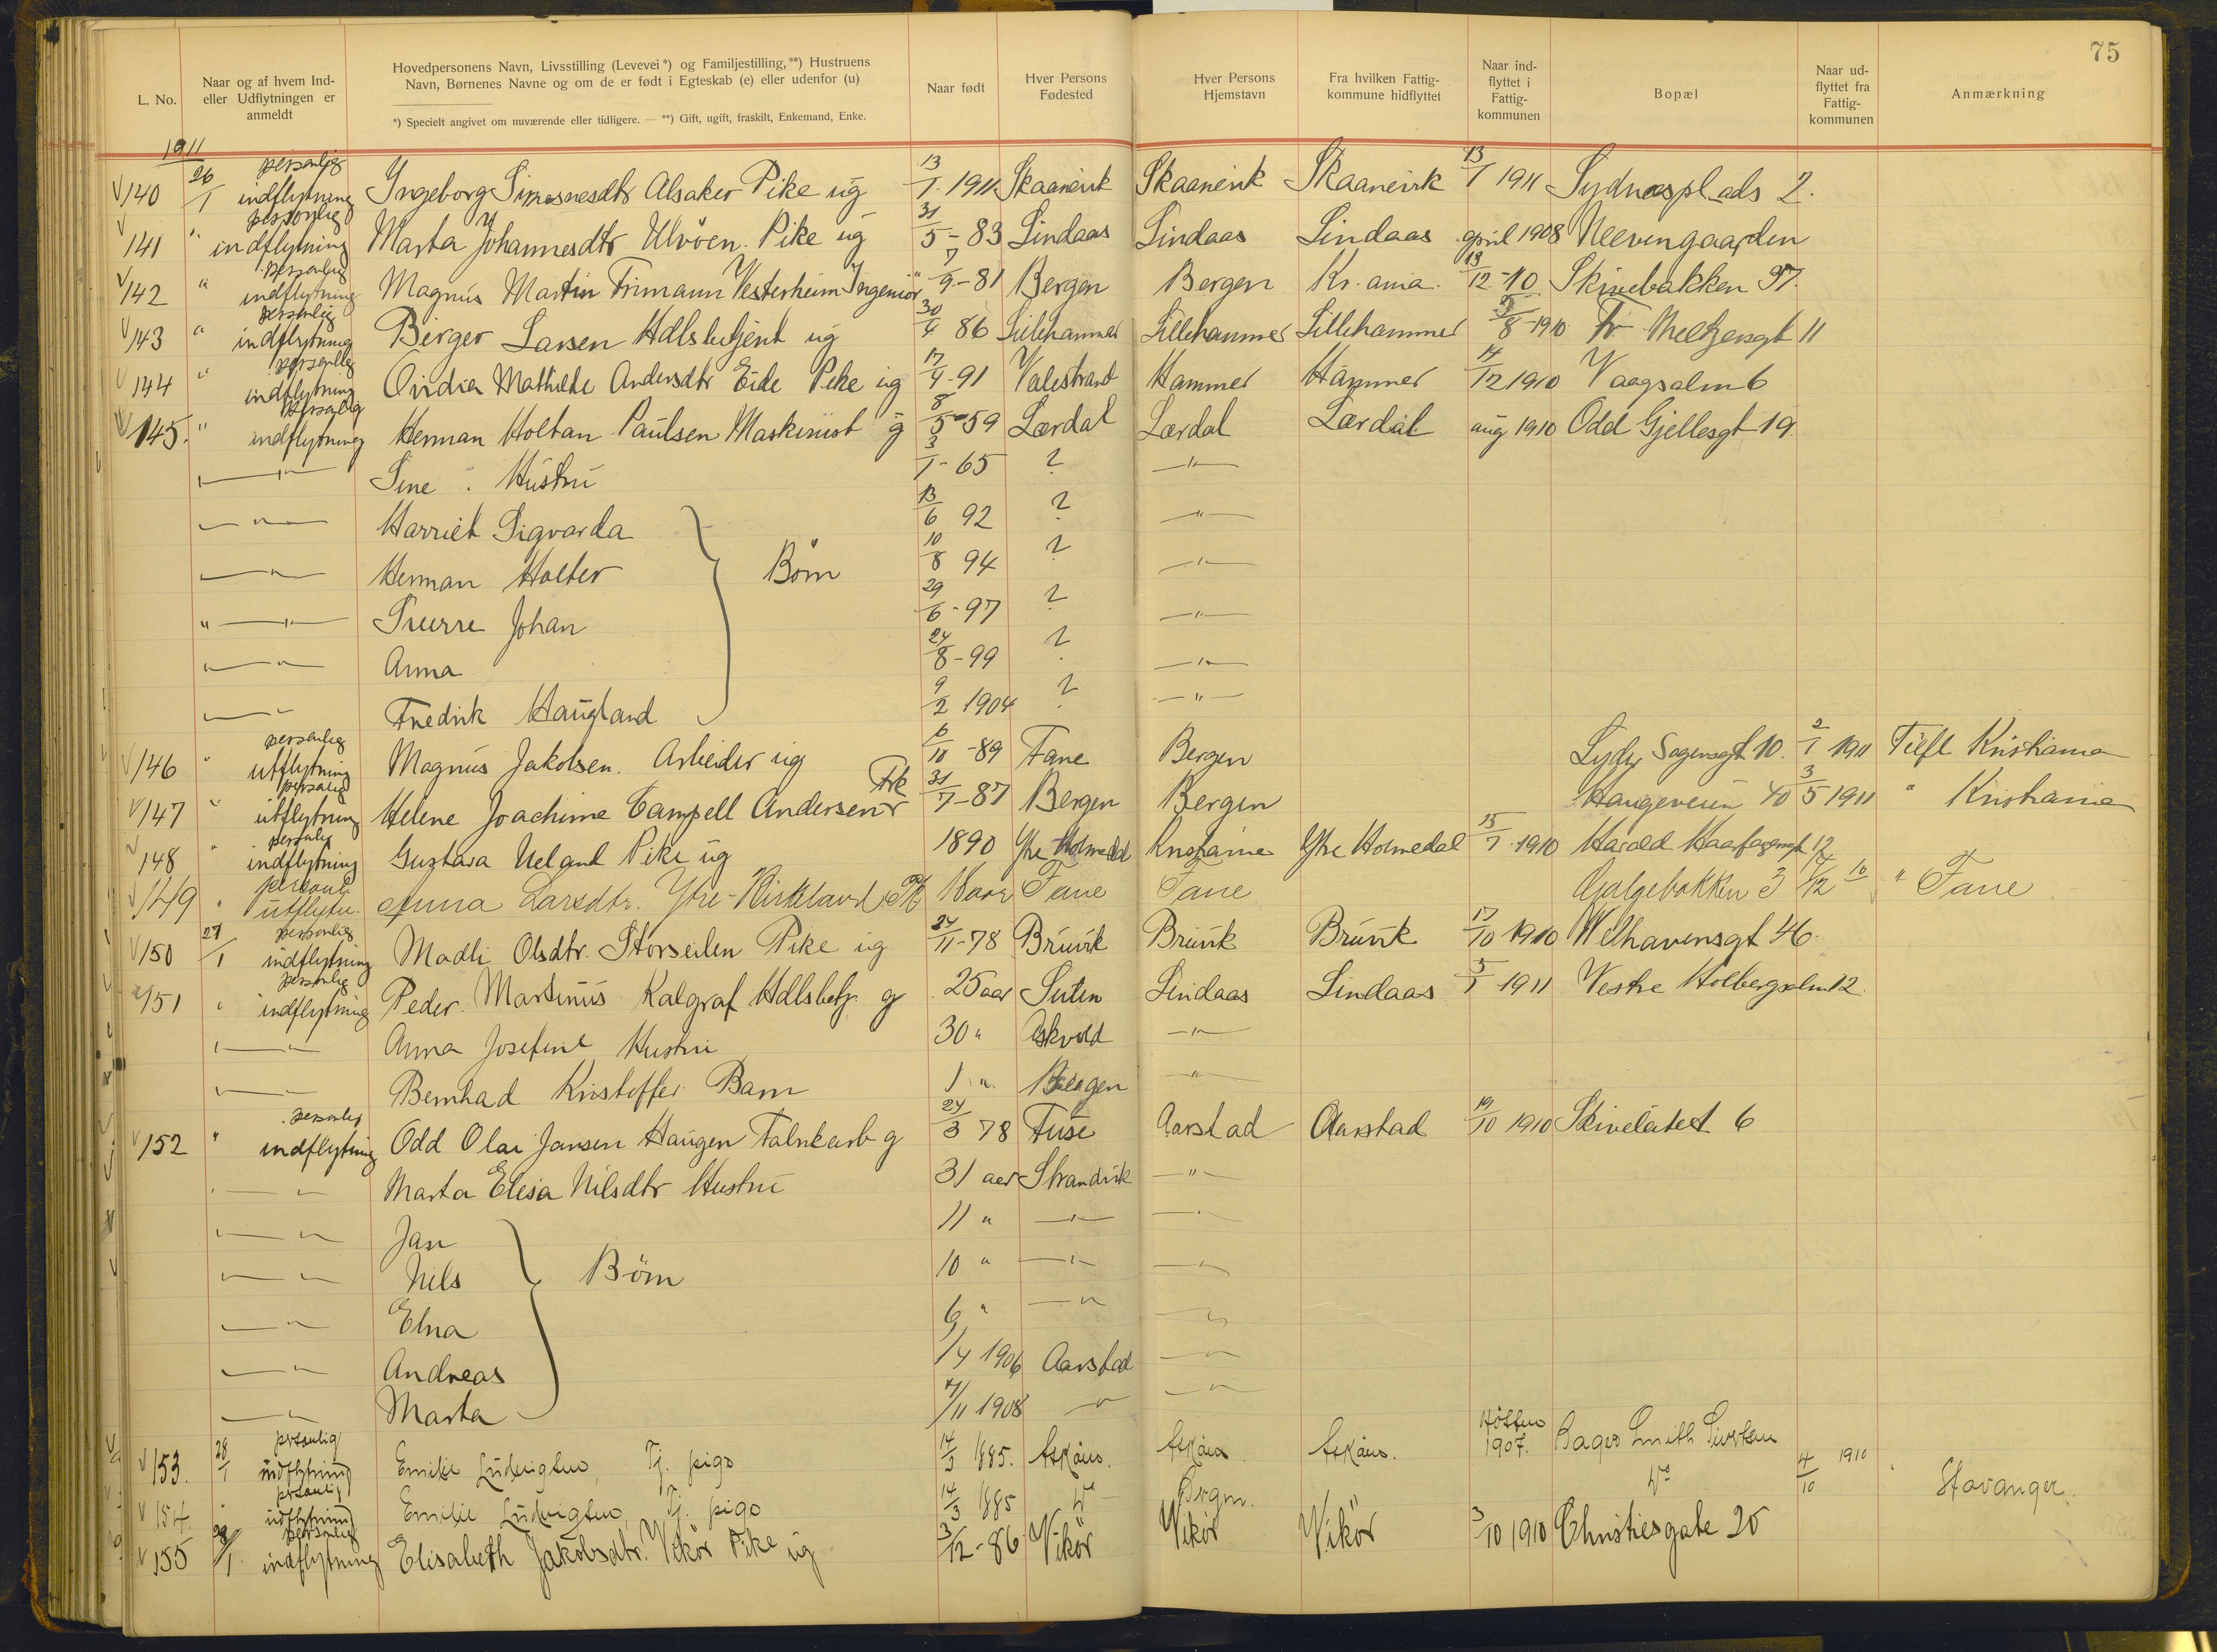 75
L. No.
Naar og af hvem Ind-
eller Udflytningen er
anmeldt
Hovedpersonens Navn, Livsstilling (Levevei*) og Familjestilling,**) Hustruens
Navn, Børnenes Navne og om de er født i Egteskab (e) eller udenfor (u)
*) Specielt angivet om nuværende eller tidligere. — **) Gift, ugift, fraskilt, Enkemand, Enke.
Naar født
Hver Persons
Fødested
Hver Persons
Hjemstavn
Fra hvilken Fattig-
kommune hidflyttet
Naar ind-
flyttet i
Fattig-
kommunen
Bopæl
Naar ud-
flyttet fra
Fattig-
kommunen
Anmærkning
1911
140 26/1 personlig indflytning Ingeborg Simesnesdtr Alsaker Pike ug 13/1 1911 Skaanevik Skaanevik Skaanevik 13/1 1911 Sydnesplads 2.
141 " personlig indflytning Marta Johannesdtr Ulvöen. Pike ug 31/5-83 Lindaas Lindaas Lindaas april 1908 Neevengaarden
142 " personlig indflytning Magnus Martin Frimann Vesterheim Ingeniör 7/9-81 Bergen Bergen Kr.ania. 13/12-10 Skivebakken 37.
143 " personlig indflytning Birger Larsen Hdlsbetjent ug 30/4 86 Lillehammer Lillehammer Lillehammer 5/8-1910 Fr Meltzersgt 11
144 " personlig indflytning Ovidia Mathilde Andersdtr Eide Pike ug 17/4-91 Valestrand Hammer Hammer 14/12 1910 Vaagsalm 6
145. " personlig indflytning Herman Holtan Paulsen Maskinist g 8/5-59 Lærdal Lærdal Lærdal aug 1910 Odd Gjellesgt 19.
—"— Sine. Hustru 3/1-65 ? —"—
—"— Harriet Sigvarda 13/6 92 ? —"—
—"— Herman Holter Börn 10/8 94 ? —"—
"—"— Sverre Johan 29/6-97 ? —"—
—"— Anna 24/8-99 ? —"—
—"— Fredrik Haugland 9/2 1904 ? —"—
146 " personlig utflytning Magnus Jakobsen. Arbeider ug 6/10-89 Fane Bergen Lyder Sagensgt 10. 2/1 1911 Tilfl Kristiania
147 " personlig utflytning Helene Joachime Campell Andersen Frk 31/7-87 Bergen Bergen Haugeveien 40 3/5 1911 " Kristiania
148 " personlig indflytning Gustava Ueland Pike ug 1890 Ytre Holmedal Kristiania Ytre Holmedal 15/7 1910 Harald Haarfagersgt 12
149 " personl. utflytn. Anna Larsdtr. Ytre-Kirkland Pk 18 aar Fane Fane Galgebakken 3 14/12 10 " Fane
150 27/1 personlig indflytning Madli Olsdtr. Storseilen Pike ug 24/11-78 Bruvik Bruvik Bruvik 17/10 1910 Welhavensgt 46.
151 " personlig indflytning Peder Martinus Kalgraf Hdlsbetj. g 25 aar Lindaas Lindaas 5/1 1911 Vestre Holbergsalm 12.
—"— Anna Josefine Hustru 30 " Askvold —"—
—"— Bernhad Kristoffer Barn 1 " Bergen —"—
152 " personlig indflytning Odd Olai Jansen Haugen Fabrikarb g 24/3 78 Fuse Aarstad Aarstad 19/10 1910 Skivelatet 6
—"— Marta Elesa Nilsdtr Hustru 31 aar Strandvik —"—
—"— Jan 11 " —"— —"—
—"— Nils Börn 10 " —"— —"—
—"— Elna 6 " —"— —"—
—"— Andreas 1/4 1906 Aarstad —"—
—"— Marta 4/11 1908 —"— —"—
153. 28/1 personlig indflytning Emilie Ludvigsen, Tj. pige 14/3 1885. Høsten 1907. Bager Smith Sivertsen
154. " personlig udflytning Emilie Ludvigsen Tj. pige 14/3 1885 Do Bergen. Do 4/10 1910 " Stavanger.
155 28/1 personlig indflytning Elisabeth Jakobsdtr. Vikör Pike ug 3/12-86 Vikör Vikör Vikör 3/10 1910 Christiesgate 25